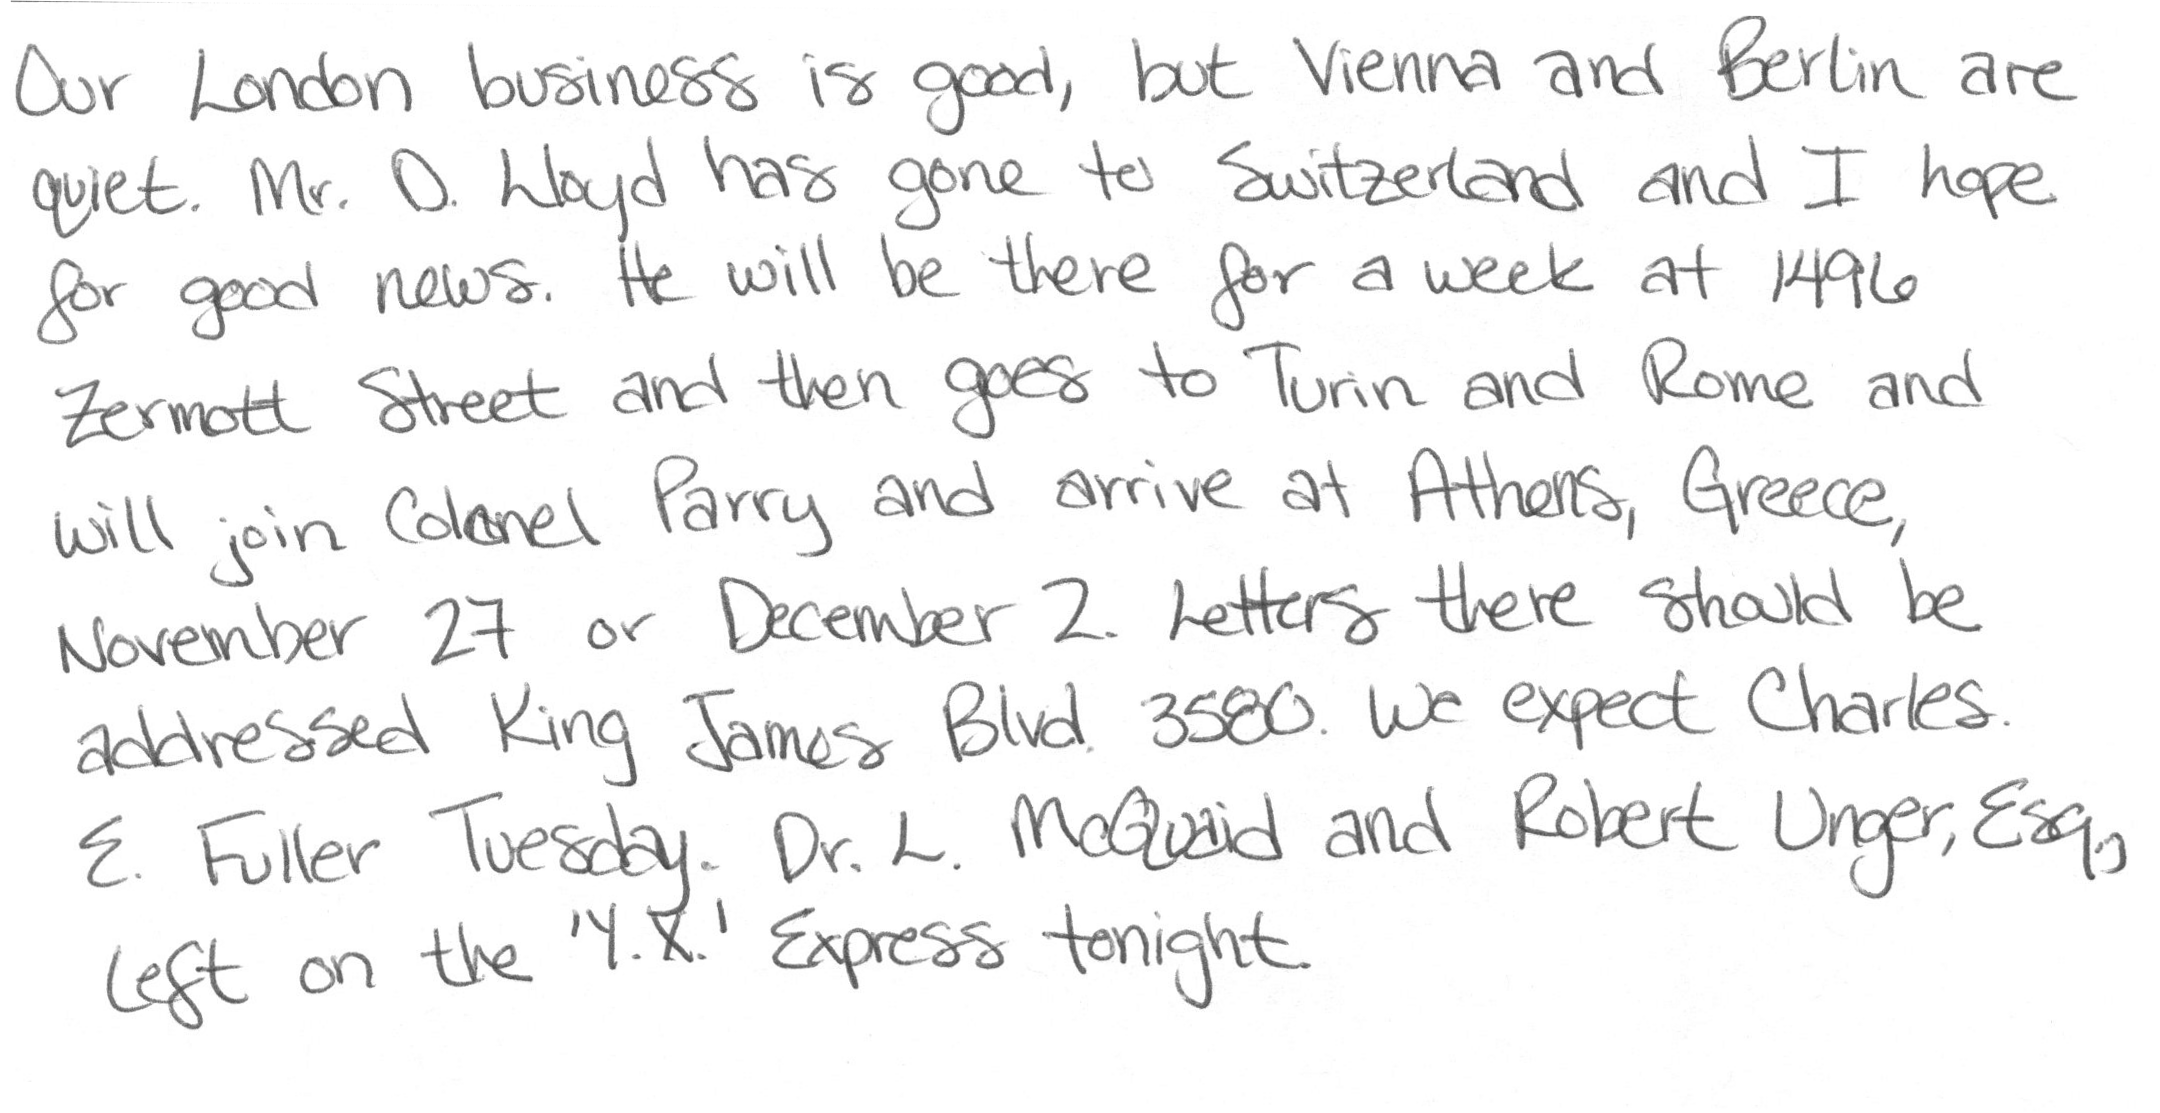 Our London business is good, but Vienna and Berlin are
quiet. Mr. D. Lloyd has gone to Switzerland and I hope
for good news. He will be there for a week at 1496
Zermott Street and then goes to Turin and Rome and
will join Colonel Parry and arrive at Athens, Greece,
November 27 or December 2. Letters there should be
addressed King James Blvd. 3580. We expect Charles.
E. Fuller Tuesday. Dr. L. McQuaid and Robert Unger, Esq.,
left on the 'Y.X.' Express tonight.